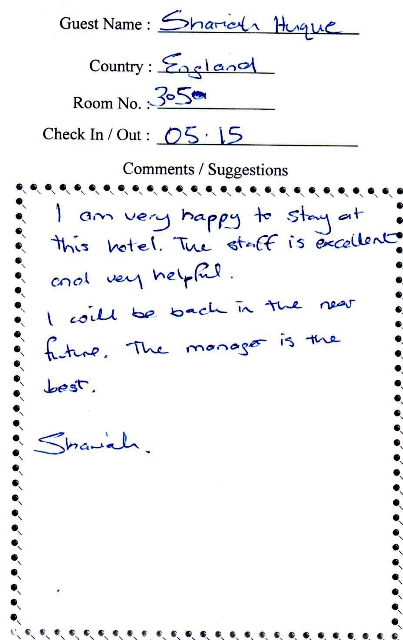 Guest Name : Shariah Huque
Country : England
Room No. : 305
Check In / Out : 05.15
Comments / Suggestions
I am very happy to stay at
this hotel. The staff is excellent
and very helpful.
I will be back in the near
future. The manager is the
best.
Shariah.